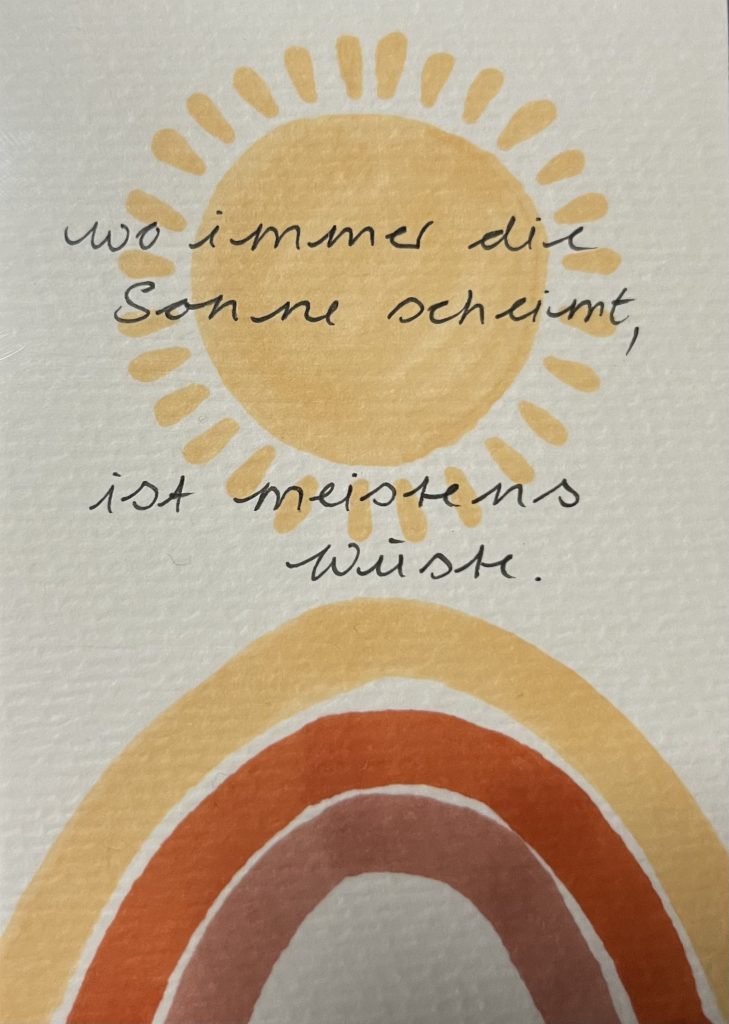 wo immer die
Sonne scheint,
ist meistens
Wüste.